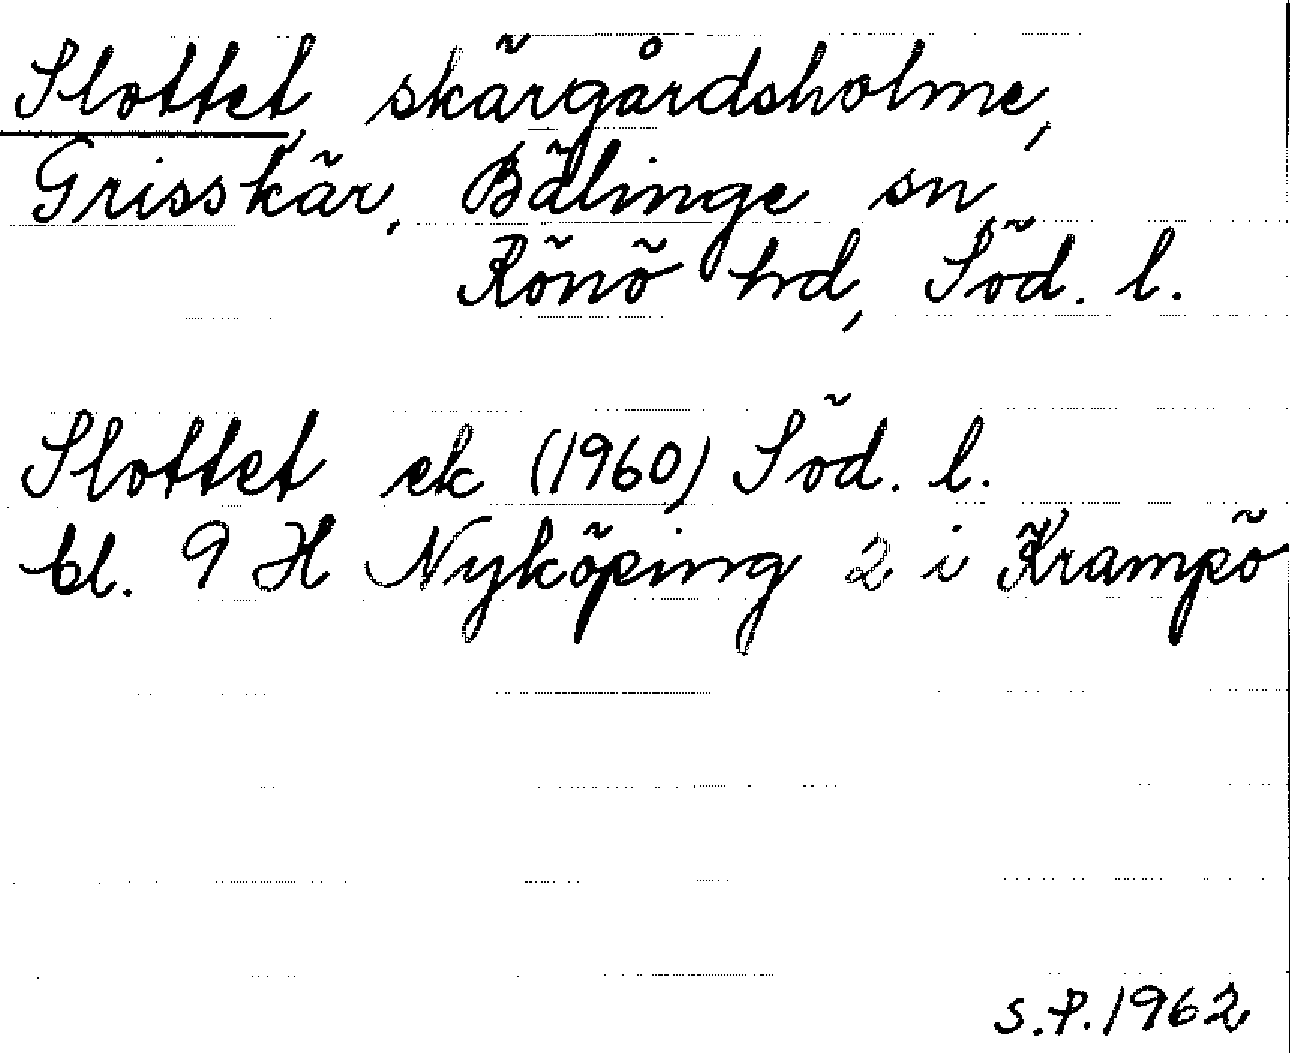 Slottet, skärgårdsholme,
Grisskär, Bälinge sn,
Rönö hd, Söd. l.
Slottet ek (1960) Söd. l.
bl. 9 H Nyköping 2 i Krampö
S.P. 1962